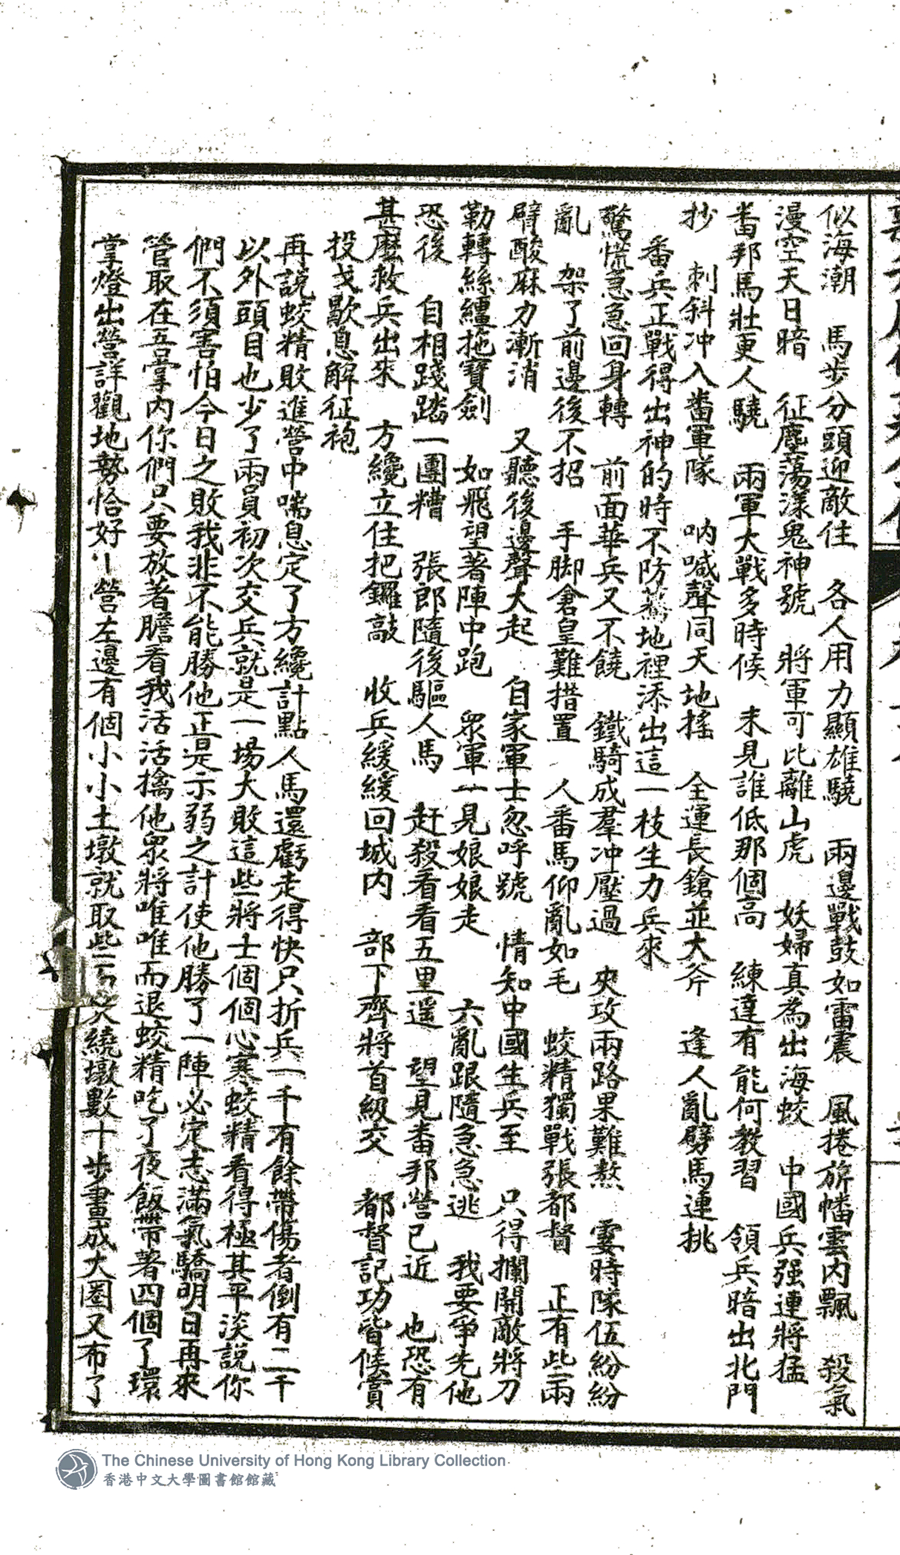 似海潮　馬步分頭迎敵住　各人用力顯雄驍　兩邊戰鼓如雷震　風捲旂幡雲內飄　殺氣
漫空天日暗　征塵蕩漾鬼神號　將軍可比離山虎　妖婦真為出海蛟　中國兵强連將猛
畨邦馬壯更人驍　兩軍大戰多時候　未見誰低那個高　練達有能何教習　領兵暗出北門
抄　刺斜冲入畨軍隊　吶喊聲同天地搖　全運長鎗並大斧　逢人亂劈馬連挑
番兵正戰得出神的時不防驀地裡添出這一枝生力兵來
驚慌急急回身轉　前面華兵又不饒　鐵騎成羣冲壓過　夾攻兩路果難熬　霎時隊伍紛紛
亂　架了前邊後不招　手脚倉皇難措置　人番馬仰亂如毛　蛟精獨戰張都督　正有些兩
臂酸麻力漸消　又聽後邊聲大起　自家軍士忽呼號　情知中國生兵至　只得攔開敵將刀
勒轉絲韁拖寶劍　如飛望著陣中跑　眾軍一見娘娘走　六亂跟隨急急逃　我要爭先他
恐後　自相踐踏一團糟　張郎隨後驅人馬　赶殺看看五里遥　望見畨邦營已近　也恐有
甚麼救兵出來　方纔立住把鑼敲　收兵緩緩回城內　部下齊將首級交　都督記功皆候賞
投戈歇息解征袍
再說蛟精敗進營中喘息定了方纔計點人馬還虧走得快只折兵一千有餘帶傷者倒有二千
以外頭目也少了兩員初次交兵就是一場大敗這些將士個個心寒蛟精看得極其平淡說你
們不須害怕今日之敗我非不能勝他正是示弱之計使他勝了一陣必定志滿氣驕明日再來
管取在吾掌內你們只要放著膽看我活活擒他眾將唯唯而退蛟精吃了夜飯帶著四個了環
掌燈出營詳觀地勢恰好營左邊有個小小土墩就取些繞墩數十步畫成大圈又布了
The Chinese University of Hong Kong Library Collection
香港中文大學圖書館館藏